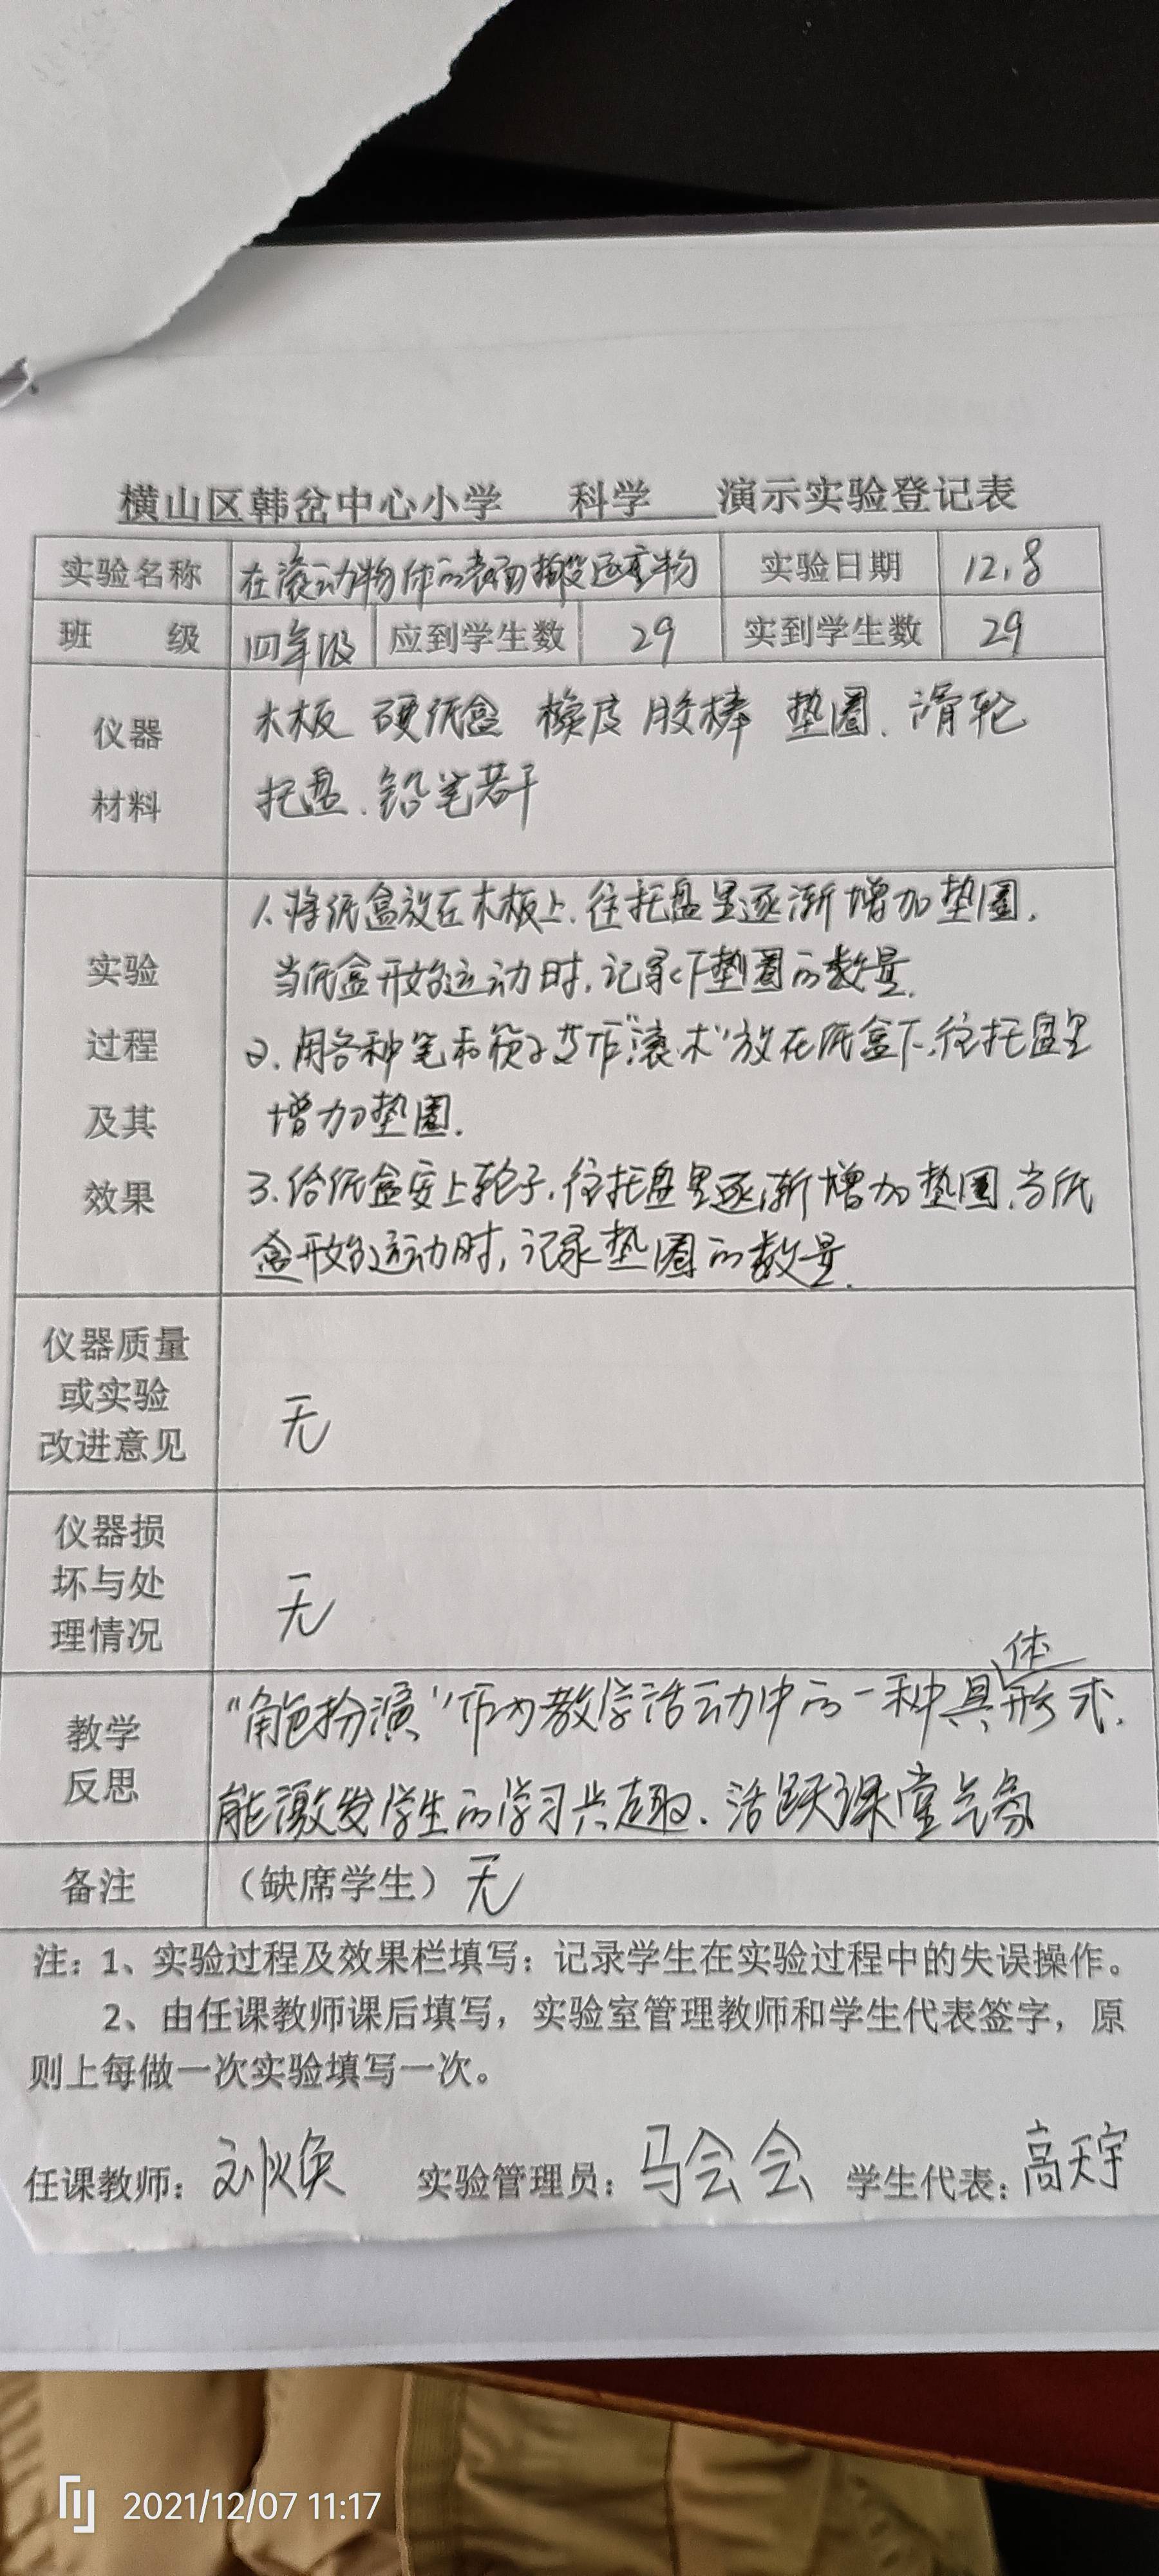 横山区韩岔中心小学 科学 演示实验登记表
实验名称 在滚动物体的表面搬运重物 实验日期 12.8
班 级 四年级 应到学生数 29 实到学生数 29
仪器
材料
木板 硬纸盒 橡皮 胶棒 垫圈、滑轮
托盘、铅笔若干
实验
过程
及其
效果
1、将纸盒放在木板上,往托盘里逐渐增加垫圈,
当纸盒开始运动时,记录下垫圈的数量.
2、用各种笔和筷子 作"滚木"放在纸盒下,往托盘里
增加垫圈.
3、给纸盒安上轮子,往托盘里逐渐增加垫圈,当纸
盒开始运动时,记录垫圈的数量.
仪器质量
或实验
改进意见
无
仪器损
坏与处
理情况
无
教学
反思
"角色扮演"作为教学活动中的一种具体形式,
能激发学生的学习兴趣、活跃课堂气氛
备注 (缺席学生) 无
注:1、实验过程及效果栏填写:记录学生在实验过程中的失误操作。
2、由任课教师课后填写,实验室管理教师和学生代表签字,原
则上每做一次实验填写一次。
任课教师:刘焕 实验管理员:马会会 学生代表:高天宇
2021/12/07 11:17